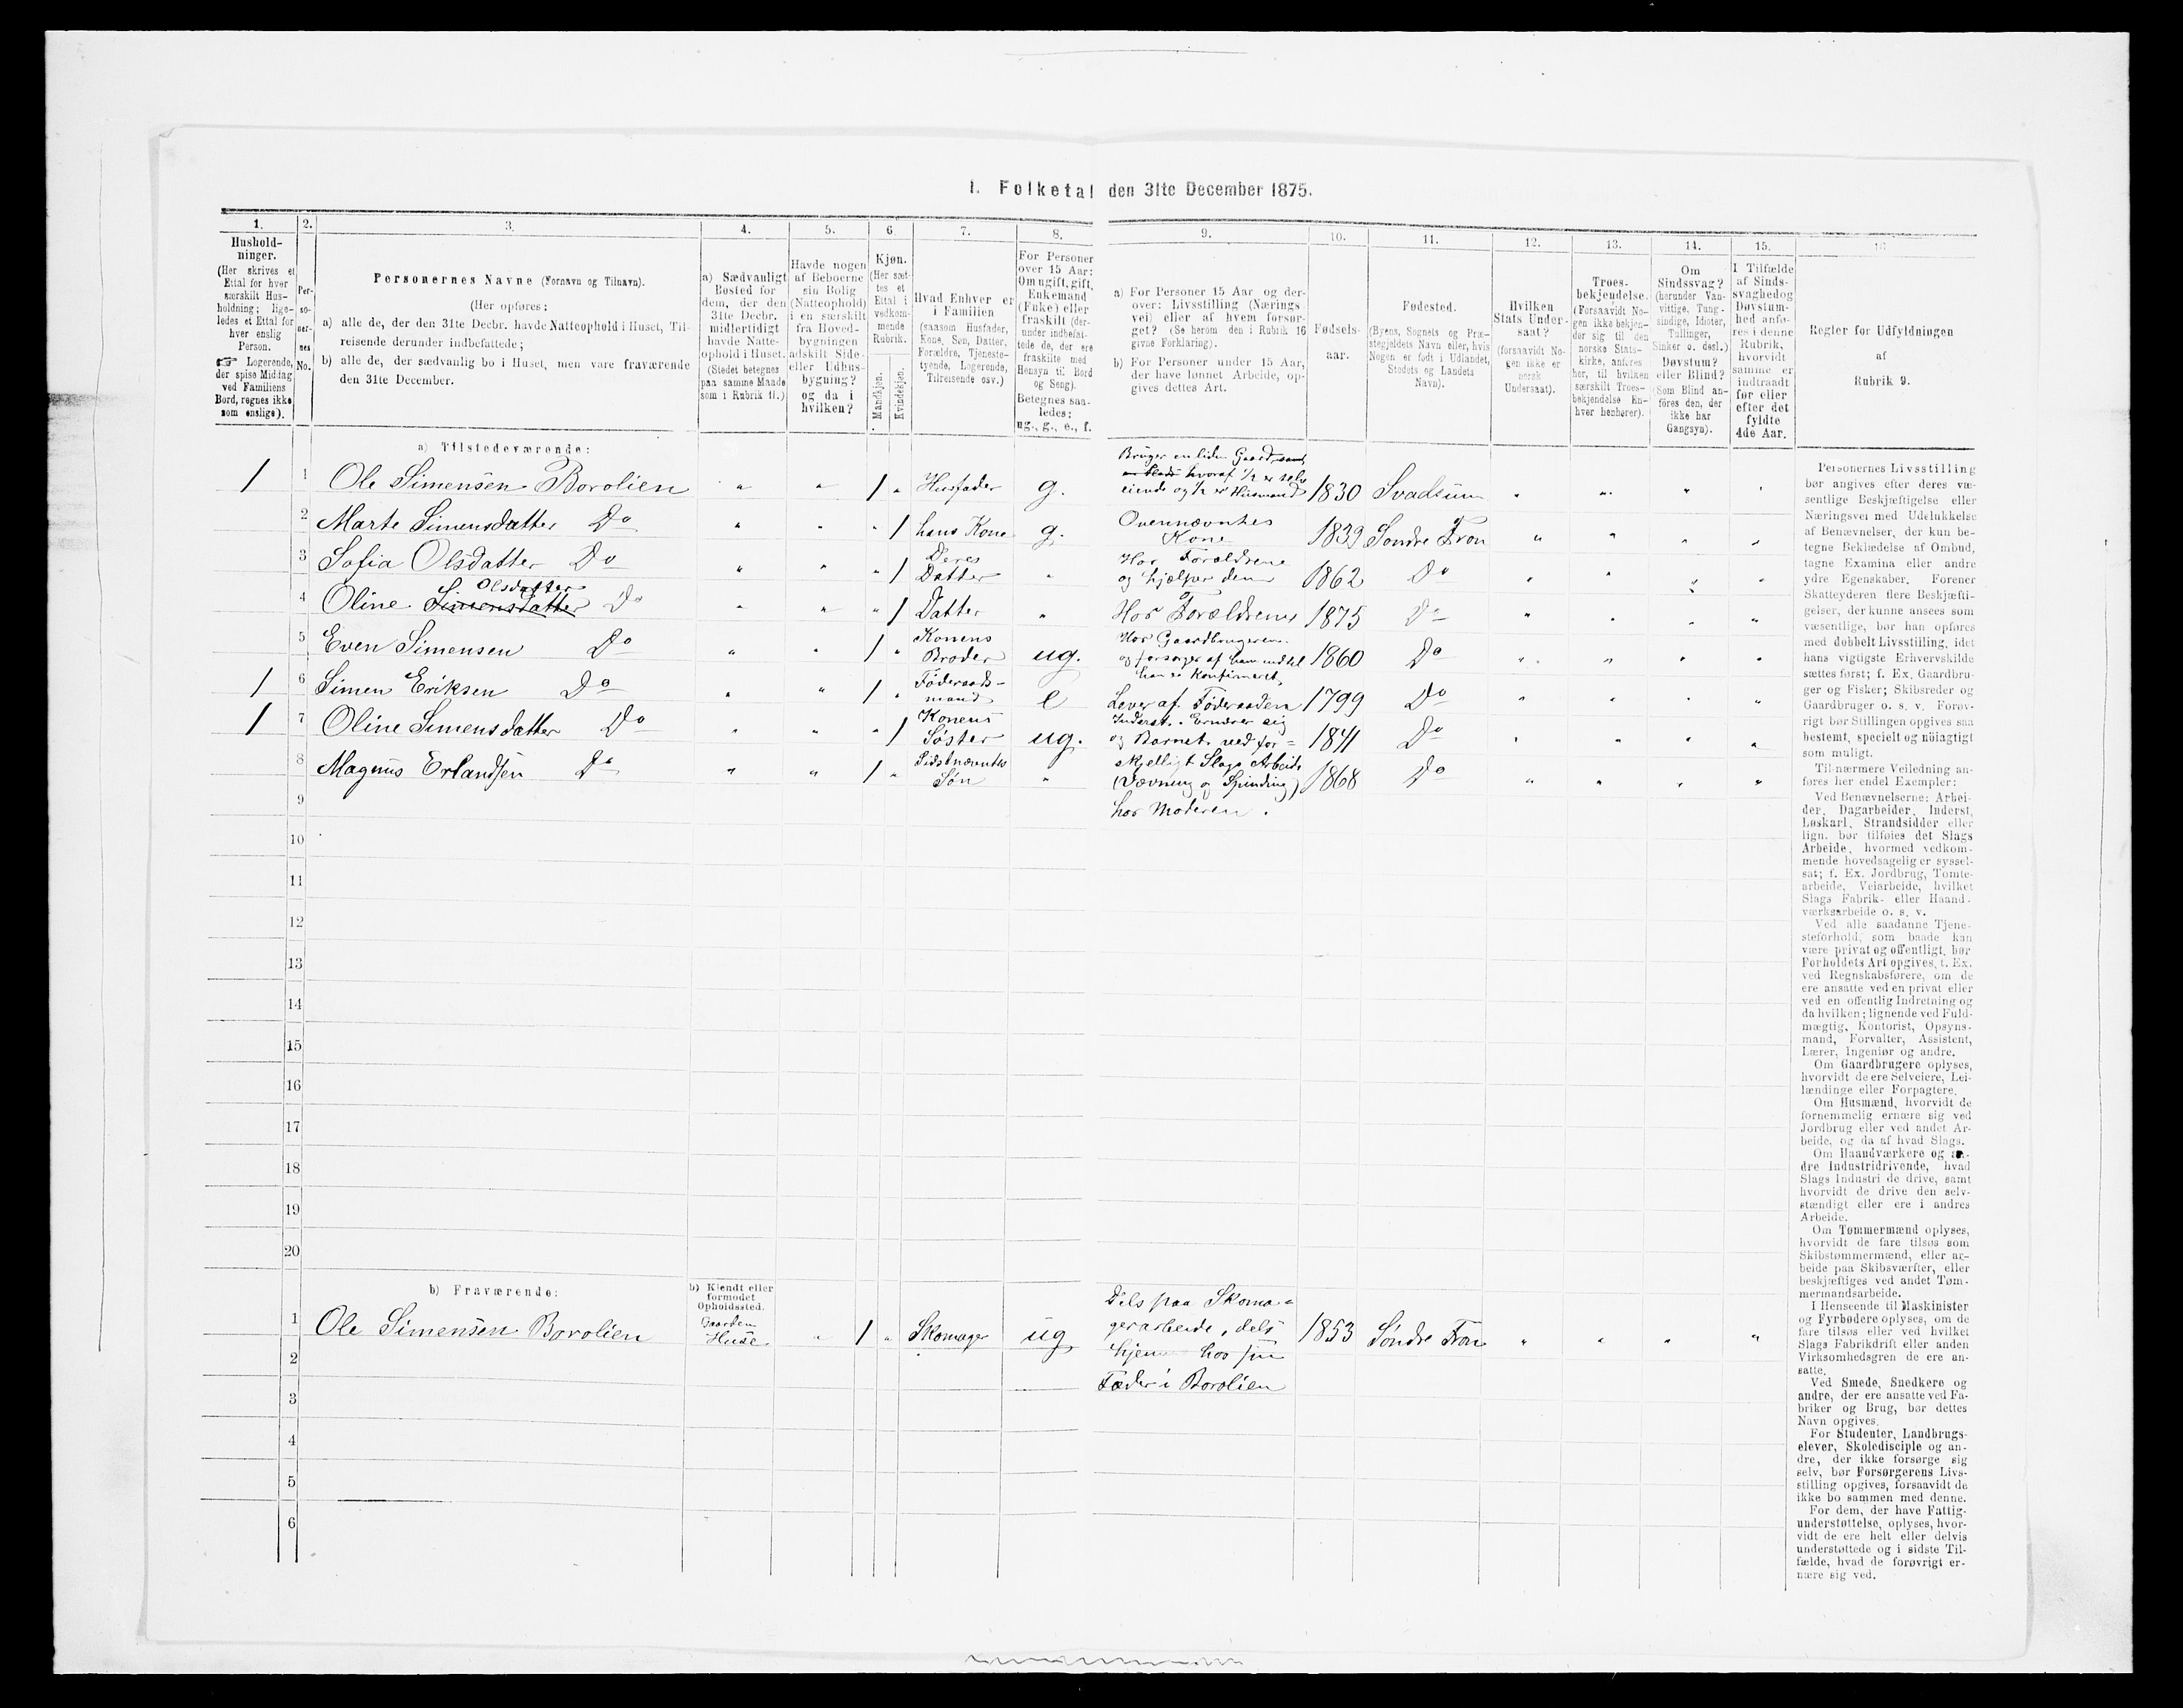 I. Folketal den 31te December 1875.
1. 2. 3. 4. 5. 6 7. 8. 9. 10. 11. 12. 13. 14. 15. 16
Hushold-
ninger.
(Her skrives et
Ettal for hver
særskilt Hus-
holdning; lige-
ledes et Ettal for
hver enslig
Person.
☞ Logerende,
der spise Middag
ved Familiens
Bord, regnes ikke
som enslige).
Per-
so-
ner-
nes
No.
Personernes Navne (Fornavn og Tilnavn).
(Her opføres:
a) alle de, der den 31te Decbr. havde Natteophold i Huset, Til-
reisende derunder indbefattede;
b) alle de, der sædvanlig bo i Huset, men vare fraværende
den 31te December.
a) Sædvanligt
Bosted for
dem, der den
31te Decbr.
midlertidigt
havde Natte-
ophold i Huset.
(Stedet betegnes
paa samme Maade
som i Rubrik 11.)
Havde nogen
af Beboerne
sin Bolig
(Natteophold)
i en særskilt
fra Hoved-
bygningen
adskilt Side-
eller Udhus-
bygning?
og da i
hvilken?
Kjøn.
(Her sæt-
tes et
Ettal i
vedkom-
mende
Rubrik.
Mandkjøn.
Kvindekjøn.
Hvad Enhver er
i Familien
(saasom Husfader,
Kone, Søn, Datter,
Forældre, Tjeneste-
tyende, Logerende,
Tilreisende osv.)
For Personer
over 15 Aar:
Om ugift, gift,
Enkemand
(Enke) eller
fraskilt (der-
under indbefat-
tede de, der ere
fraskilte med
Hensyn til Bord
og Seng).
Betegnes saa-
ledes:
ug., g., e., f.
a) For Personer 15 Aar og der-
over: Livsstilling (Nærings-
vei) eller af hvem forsør-
get? (Se herom den i Rubrik 16
givne Forklaring).
b) For Personer under 15 Aar,
der have lønnet Arbeide, op-
gives dettes Art.
Fødsels-
aar.
Fødested.
(Byens, Sognets og Præ-
stegjeldets Navn eller, hvis
Nogen er født i Udlandet,
Stedets og Landets
Navn).
Hvilken
Stats Under-
saat?
(forsaavidt No-
gen ikke er
norsk
Undersaat).
Troes-
bekjendelse.
(Forsaavidt No-
gen ikke bekjen-
der sig til den
norske Stats-
kirke, anføres
her, til hvilken
særskilt Troes-
bekjendelse En-
hver henhører).
Om
Sindssvag?
(herunder Van-
vittige, Tung-
sindige, Idioter,
Tullinger,
Sinker o. desl.)
Døvstum?
eller Blind?
(Som Blind an-
føres den, der
ikke har
Gangsyn).
I Tilfælde
af Sinds-
svaghed og
Døvstum-
hed anfø-
res i denne
Rubrik,
hvorvidt
samme er
indtraadt
før eller
efter det
fyldte
4de Aar.
Regler for Udfyldningen
af
Rubrik 9.
a) Tilstedeværende:
1 1 Ole Simensen Borolien " " 1 " Husfader g. Bruger en liden Gaard
hvoraf 1/2 er selv
eiende og 1/2 er Husmand 1830 Svadsum " " " "
2 Marte Simensdatter Do " " " 1 hans Kone g. Ovennævntes
Kone 1839 Søndre Fron " " " "
3 Sofia Olsdatter Do " " " 1 Deres
Datter " Hos Forældrene
og hjælper dem 1862 Do " " " "
4 Oline Simensdatter Olsdatter Do " " " 1 Datter " Hos Forældrene 1875 Do " " " "
5 Even Simensen Do " " 1 " Konens
Broder ug. Hos Gaardbrugeren
og forsørges af ham indtil
han er konfirmeret 1860 Do " " " "
1 6 Simen Eriksen Do " " 1 " Føderaads-
mand e Lever af Føderaaden 1799 Do " " " "
1 7 Oline Simensdatter Do " " " 1 Konens
Søster ug. Inderst. Ernærer sig
og Barnet ved for-
skjelligt Slags Arbeide
(Vævning og Spinding) 1841 Do " " " "
8 Magnus Erlandsen Do " " 1 " Sidstnævntes
Søn " hos Moderen. 1868 Do " " " "
9
10
11
12
13
14
15
16
17
18
19
20
b) Fraværende:
b) Kjendt eller
formodet
Opholdssted.
1 Ole Simensen Borolien Gaarden
Huse " 1 " Skomager ug Dels paa Skoma-
gerarbeide, dels
hjemme hos sin
Fader i Borolien 1853 Søndre Fron " " " "
2
3
4
5
6
Personernes Livsstilling
bør angives efter deres væ-
sentlige Beskjæftigelse eller
Næringsvei med Udelukkelse
af Benævnelser, der kun be-
tegne Beklædelse af Ombud,
tagne Examina eller andre
ydre Egenskaber. Forener
Skatteyderen flere Beskjæfti-
gelser, der kunne ansees som
væsentlige, bør han opføres
med dobbelt Livsstilling, idet
hans vigtigste Erhvervskilde
sættes først; f. Ex. Gaardbru-
ger og Fisker; Skibsreder og
Gaardbruger o. s. v. Forøv-
rigt bør Stillingen opgives saa
bestemt, specielt og nöiagtigt
som muligt.
Til nærmere Veiledning an-
føres her endel Exempler:
Ved Benævnelserne: Arbei-
der, Dagarbeider, Inderst,
Løskarl, Strandsidder eller
lign. bør tilføies det Slags
Arbeide, hvormed vedkom-
mende hovedsagelig er syssel-
sat; f. Ex. Jordbrug, Tomte-
arbeide, Veiarbeide, hvilket
Slags Fabrik- eller Haand-
værksarbeide o. s. v.
Ved alle saadanne Tjene-
steforhold, som baade kan
være privat og offentligt, bør
Forholdets Art opgives, t. Ex.
ved Regnskabsførere, om de
ere ansatte ved en privat eller
ved en offentlig Indretning og
da hvilken; lignende ved Fuld-
mægtig, Kontorist, Opsyns-
mand, Forvalter, Assistent,
Lærer, Ingeniør og andre.
Om Gaardbrugere oplyses,
hvorvidt de ere Selveiere, Lei-
lændinge eller Forpagtere.
Om Husmænd, hvorvidt de
fornemmelig ernære sig ved
Jordbrug eller ved andet Ar-
beide, og da af hvad Slags.
Om Haandværkere og an-
dre Industridrivende, hvad
Slags Industri de drive, samt
hvorvidt de drive den selv-
stændigt eller ere i andres
Arbeide.
Om Tømmermænd oplyses,
hvorvidt de fare tilsøs som
Skibstømmermænd, eller ar-
beide paa Skibsværfter, eller
beskjæftiges ved andet Tøm-
mermandsarbeide.
I Henseende til Maskinister
og Fyrbødere oplyses, om de
fare tilsøs eller ved hvilket
Slags Fabrikdrift eller anden
Virksomhedsgren de ere an-
satte.
Ved Smede, Snedkere og
andre, der ere ansatte ved Fa-
briker og Brug, bør dettes
Navn opgives.
For Studenter, Landbrugs-
elever, Skoledisciple og an-
dre, der ikke forsørge sig
selv, bør Forsørgerens Livs-
stilling opgives, forsaavidt de
ikke bo sammen med denne.
For dem, der have Fattig-
understøttelse, oplyses, hvor-
vidt de ere helt eller delvis
understøttede og i sidste Til-
fælde, hvad de forøvrigt er-
nære sig ved.